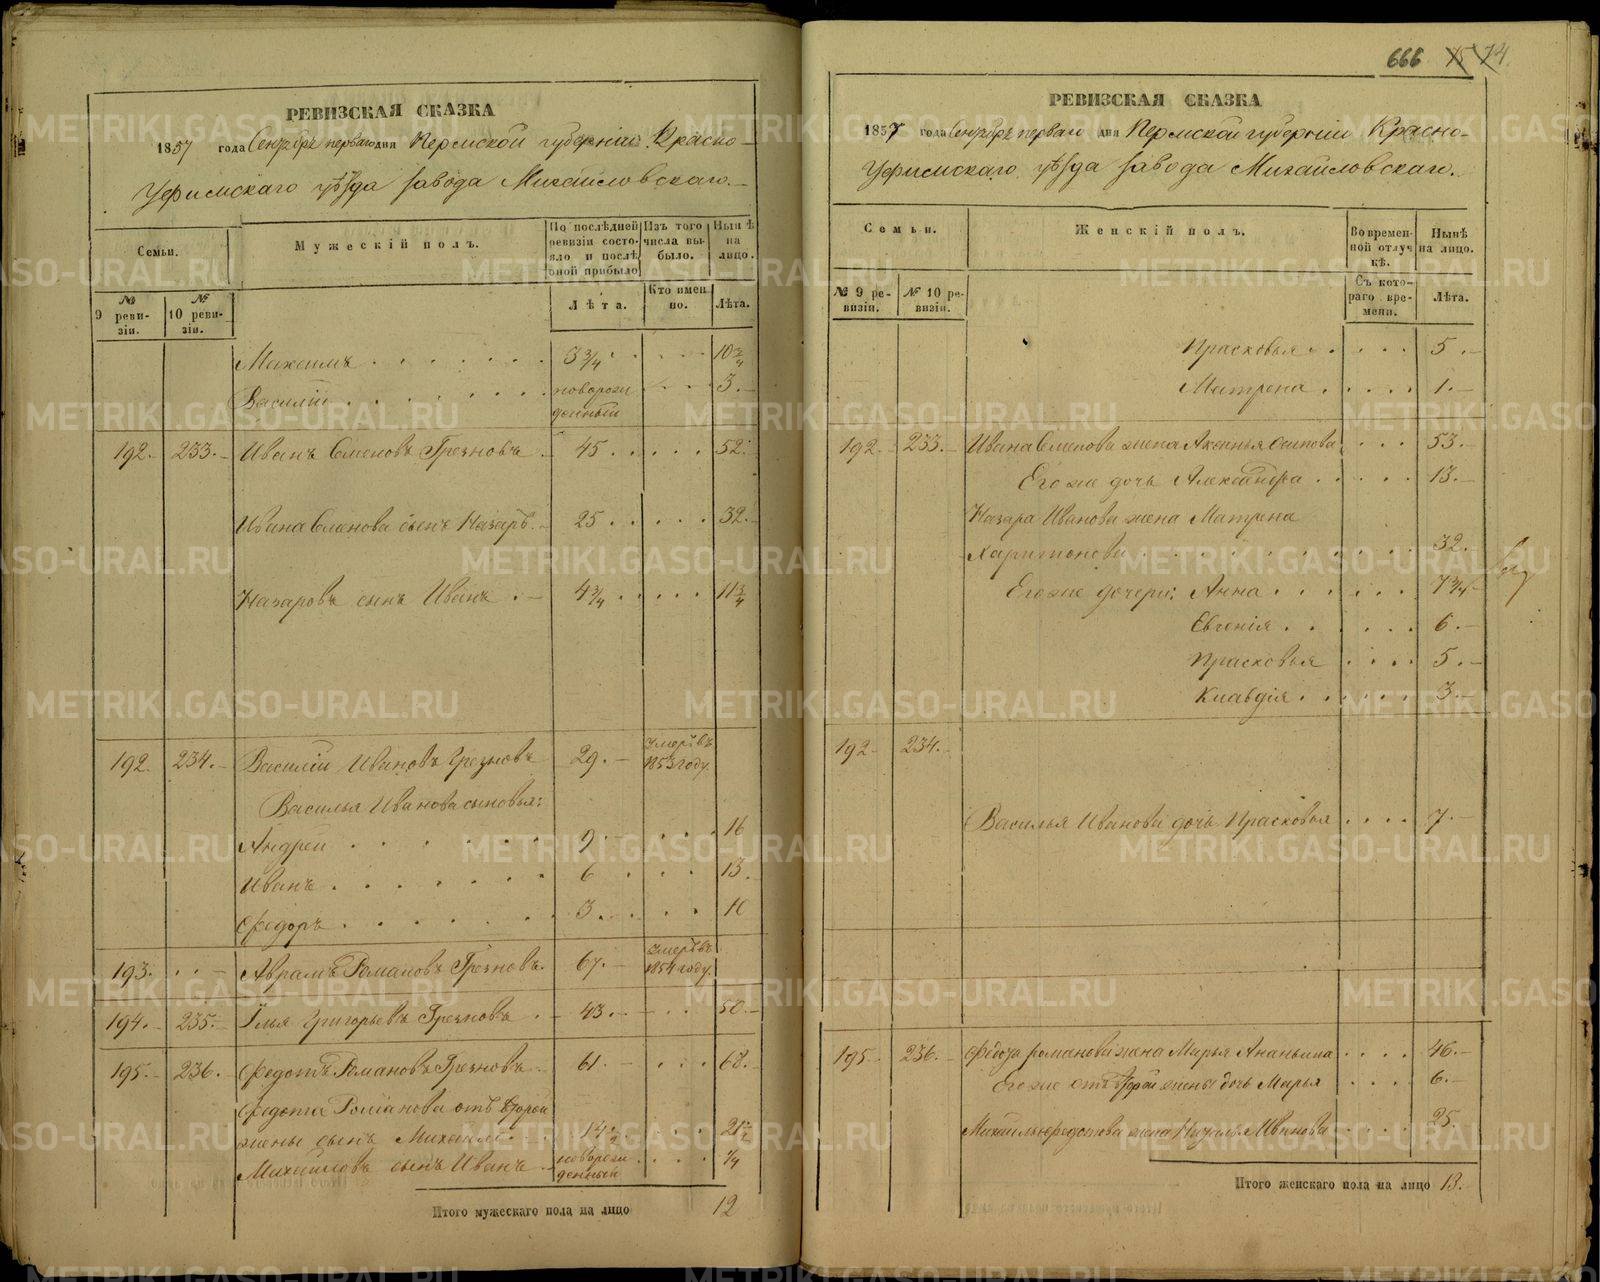 РЕВИЗСКАЯ СКАЗКА
1857 года Сентябрь перваго дня Пермской губерніи Красно-
Уфимскаго уѣзда завода Михайловскаго.
Семьи.
Мужескій полъ.
По послѣдней ревизіи состояло и послѣ оной прибыло
Изъ того числа выбыло.
Нынѣ на лицо.
№ 9 ревизіи.
№ 10 ревизіи.
Лѣта.
Кто именно.
Лѣта.
Максимъ 3 3/4 10 3/4
Василій новорожденный 3.
192. 233. Иванъ Семеновъ Грезновъ 45 52.
Ивана Семенова сынъ Назаръ 25 32.
Назаровъ сынъ Иванъ 4 3/4 11 3/4
192. 234. Василій Ивановъ Грезновъ 29. умеръ въ 1853 году.
Василья Иванова сыновья:
Андрей 9 16
Иванъ 6 13.
Федоръ 3 10
193. Аврамъ Романовъ Грезновъ. 67. умеръ въ 1854 году.
194. 235. Илья Григорьевъ Грезновъ 43. 50.
195. 236. Федотъ Романовъ Грезновъ 61. 68.
Федота Романова отъ второй
жены сынъ Михаилъ 14 1/2 21 1/2
Михайловъ сынъ Иванъ новорожденный 1/4
Итого мужескаго пола на лицо 12
666 15 74.
РЕВИЗСКАЯ СКАЗКА
1857 года Сентябрь перваго дня Пермской губерніи Красно-
Уфимскаго уѣзда завода Михайловскаго.
Семьи.
Женскій полъ.
Во временной отлучкѣ.
Нынѣ на лицо.
№ 9 ревизіи.
№ 10 ревизіи.
Съ котораго времени.
Лѣта.
Прасковья 5.
Матрена 1.
192. 233. Ивана Семенова жена Аксинья Осипова 53.
Его же дочь Александра 13.
Назара Иванова жена Матрена
Харитонова 32.
Его же дочери: Анна 7 3/4
Евгенія 6.
Прасковья 5.
Клавдія 3.
192 234.
Василья Иванова дочь Прасковья 7.
195. 236. Федота Романова жена Марья Ананьина 46.
Его же отъ второй жены дочь Марья 6.
Михайлы Федотова жена Ивановa 25.
Итого женскаго пола на лицо 13.
METRIKI.GASO-URAL.RU